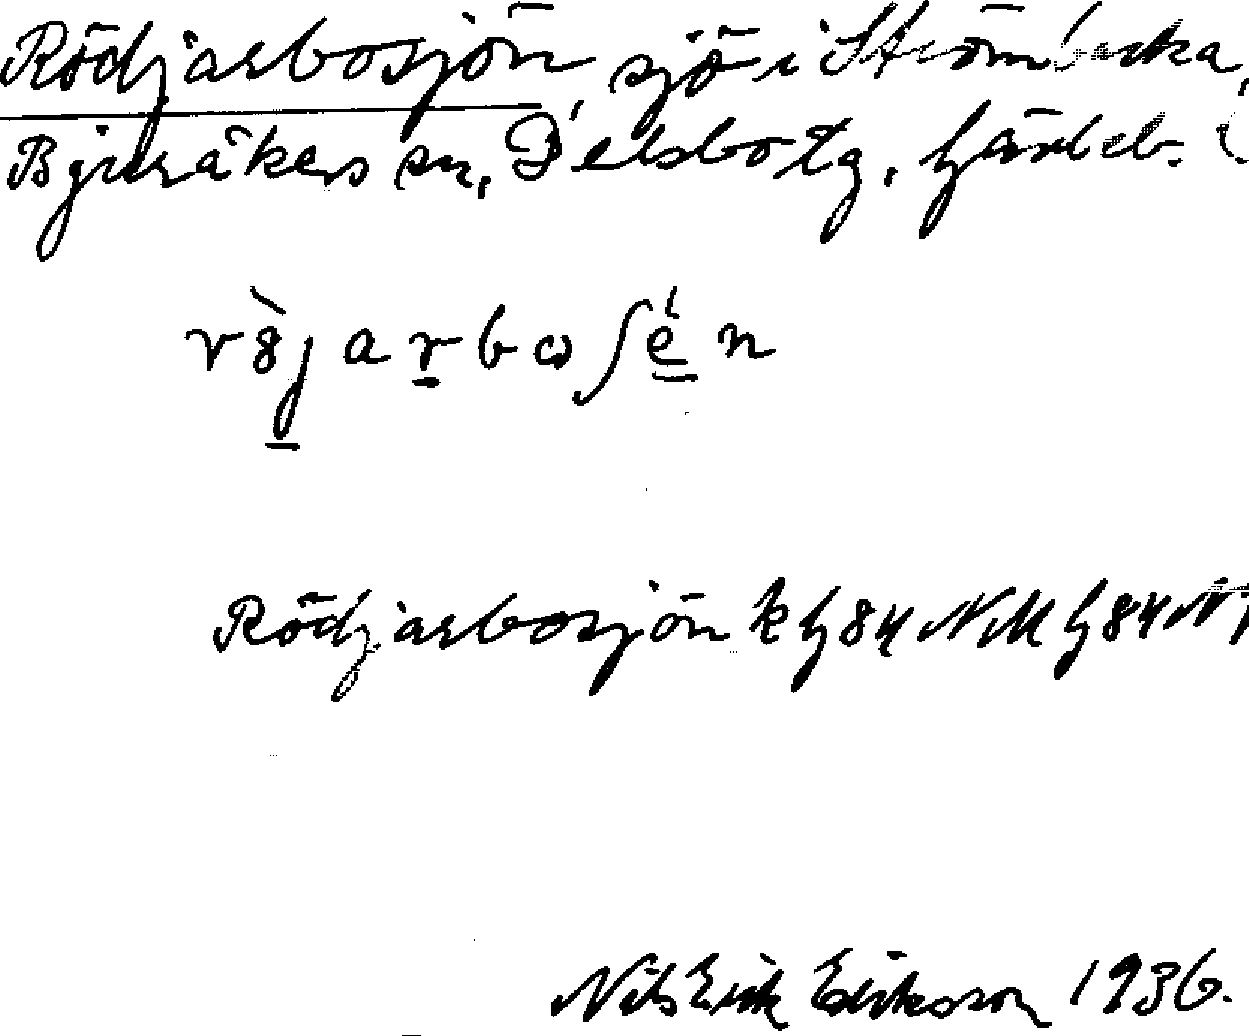 Rödjarbosjön, sjö i Strömbacka,
Bjuråkers sn, Delsbo tg, Gävleb. l
Rödjarbosjön k G84 NM G84 N
Nils Erik Eriksson 1936.